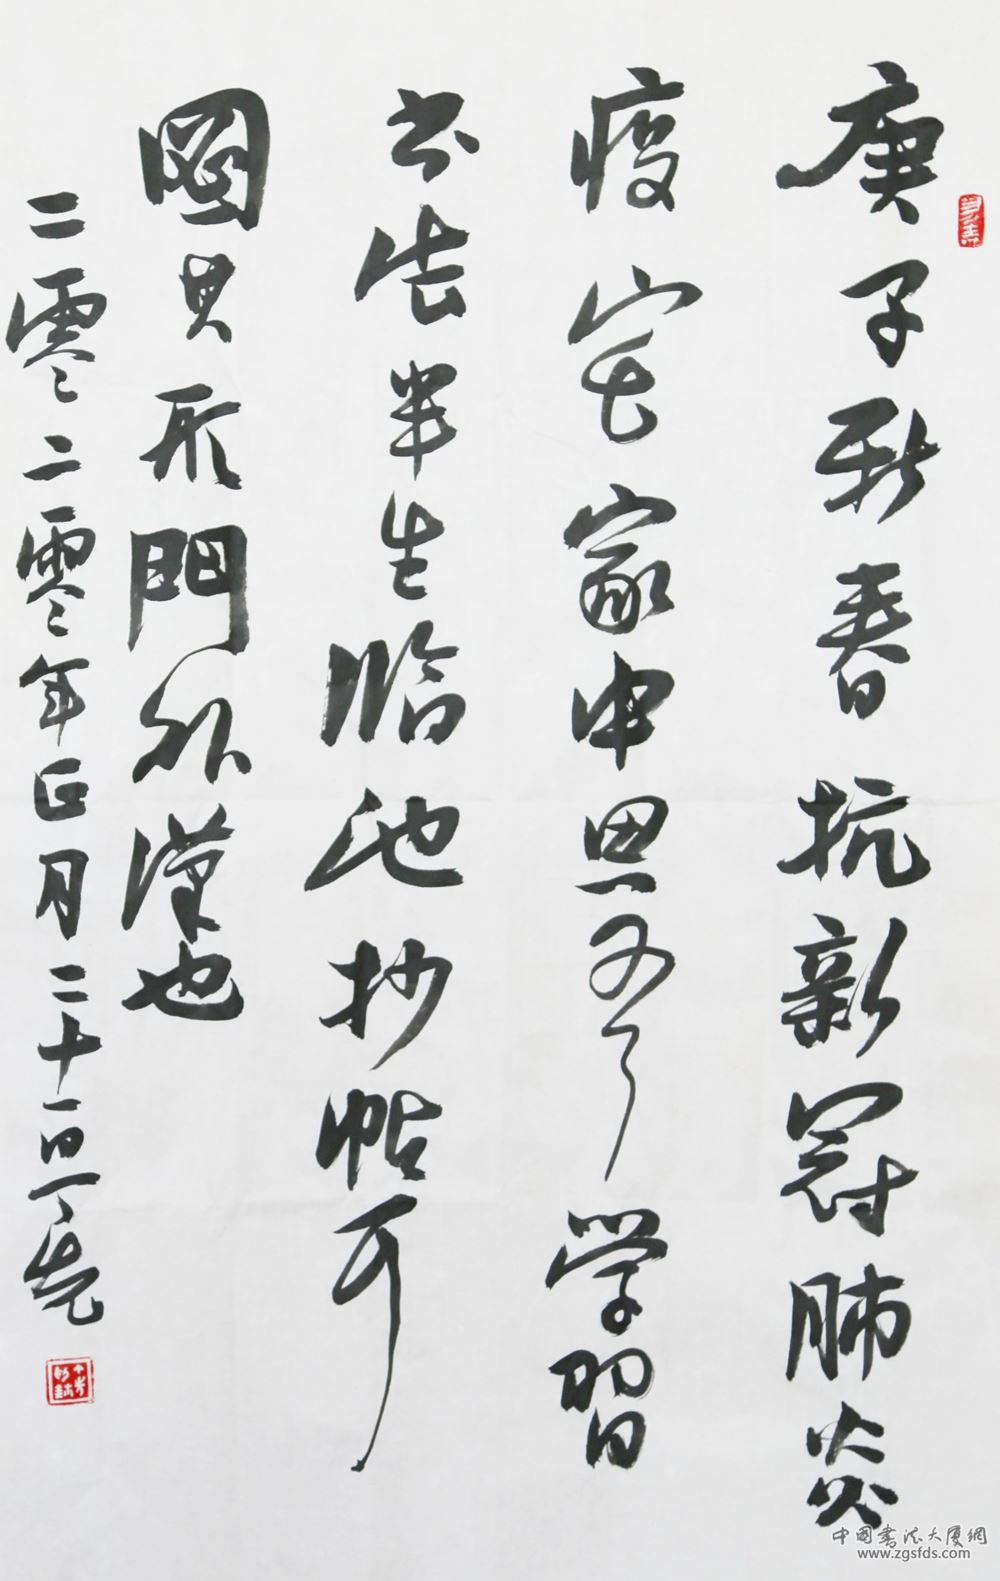 庚子新春抗新冠肺炎
疫宅家中思学習
书法半生臨池抄帖可
圖其形門外漢也
二零二零年正月二十一日
中國書法大廈網
www.zgsfds.com